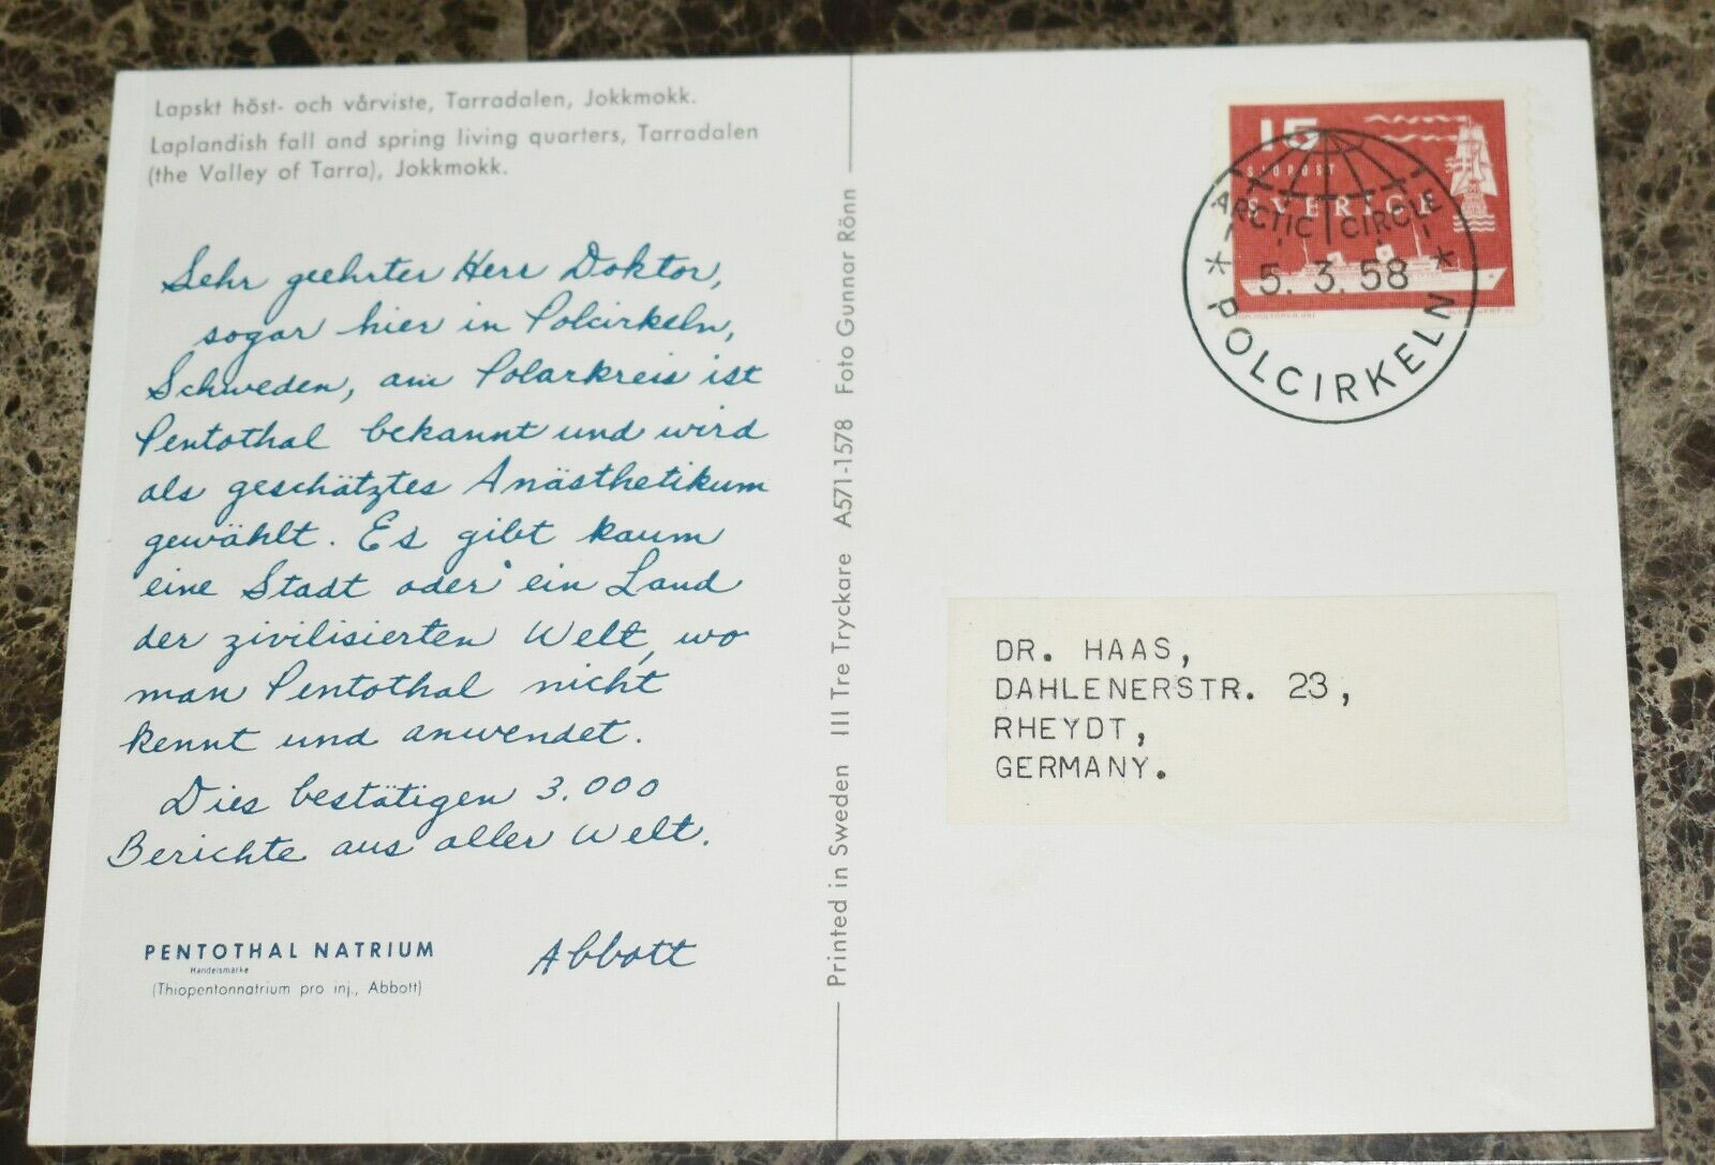 Lapskt höst- och vårviste, Tarradalen, Jokkmokk.
Laplandish fall and spring living quarters, Tarradalen
(the Valley of Tarra), Jokkmokk.
Sehr geehrter Herr Doktor,
sogar hier in Polcirkeln,
Schweden, am Polarkreis ist
Pentothal bekannt und wird
als geschätztes Anästhetikum
gewählt. Es gibt kaum
eine Stadt oder ein Land
der zivilisierten Welt, wo
man Pentothal nicht
kennt und anwendet.
Dies bestätigen 3.000
Berichte aus aller Welt.
Abbott
PENTOTHAL NATRIUM
Handelsmärke
(Thiopentonnatrium pro inj., Abbott)
Printed in Sweden III Tre Tryckare A571-1578 Foto Gunnar Rönn
15
SJÖPOST
SVERIGE
ARCTIC CIRCLE
5. 3. 58
POLCIRKELN
DR. HAAS,
DAHLENERSTR. 23,
RHEYDT,
GERMANY.